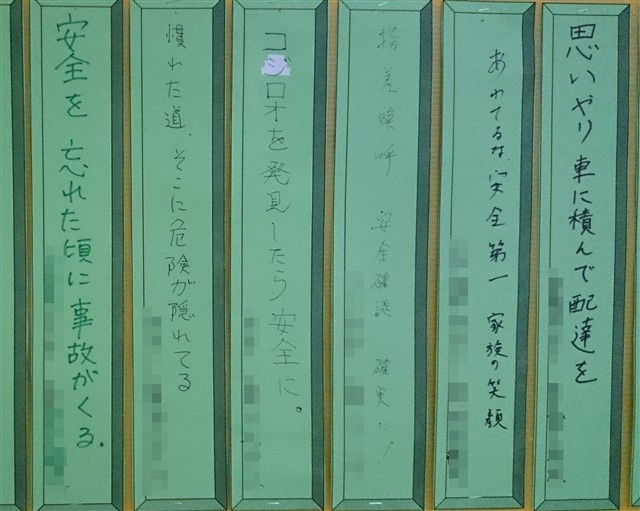 思いやり 車に積んで 配達を
あわてるな、安全第一 家族の笑顔
指差喚呼 安全確認 確実に!
コジロオを発見したら安全に。
慣れた道、そこに危険が隠れてる
安全を 忘れた頃に 事故がくる.